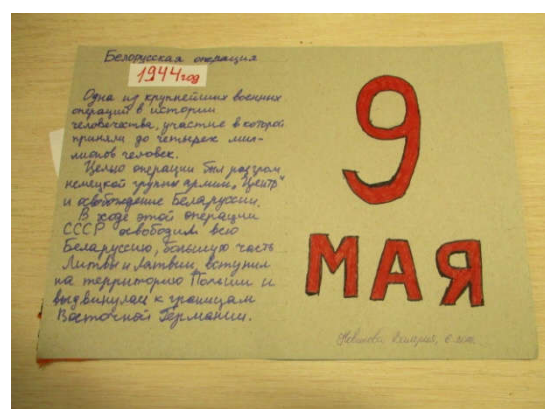 Белорусская операция
1944 год
Одна из крупнейших военных
операций в истории
человечества, участие в которой
приняли до четырёх мил-
лионов человек.
Целью операции был разгром
немецкой группы армии „Центр"
и освобождение Беларуссии.
В ходе этой операции
СССР освободил всю
Беларуссию, большую часть
Литвы и Латвии, вступил
на территорию Польши и
выдвинулась к границам
Восточной Германии.
9
МАЯ
Валерия,